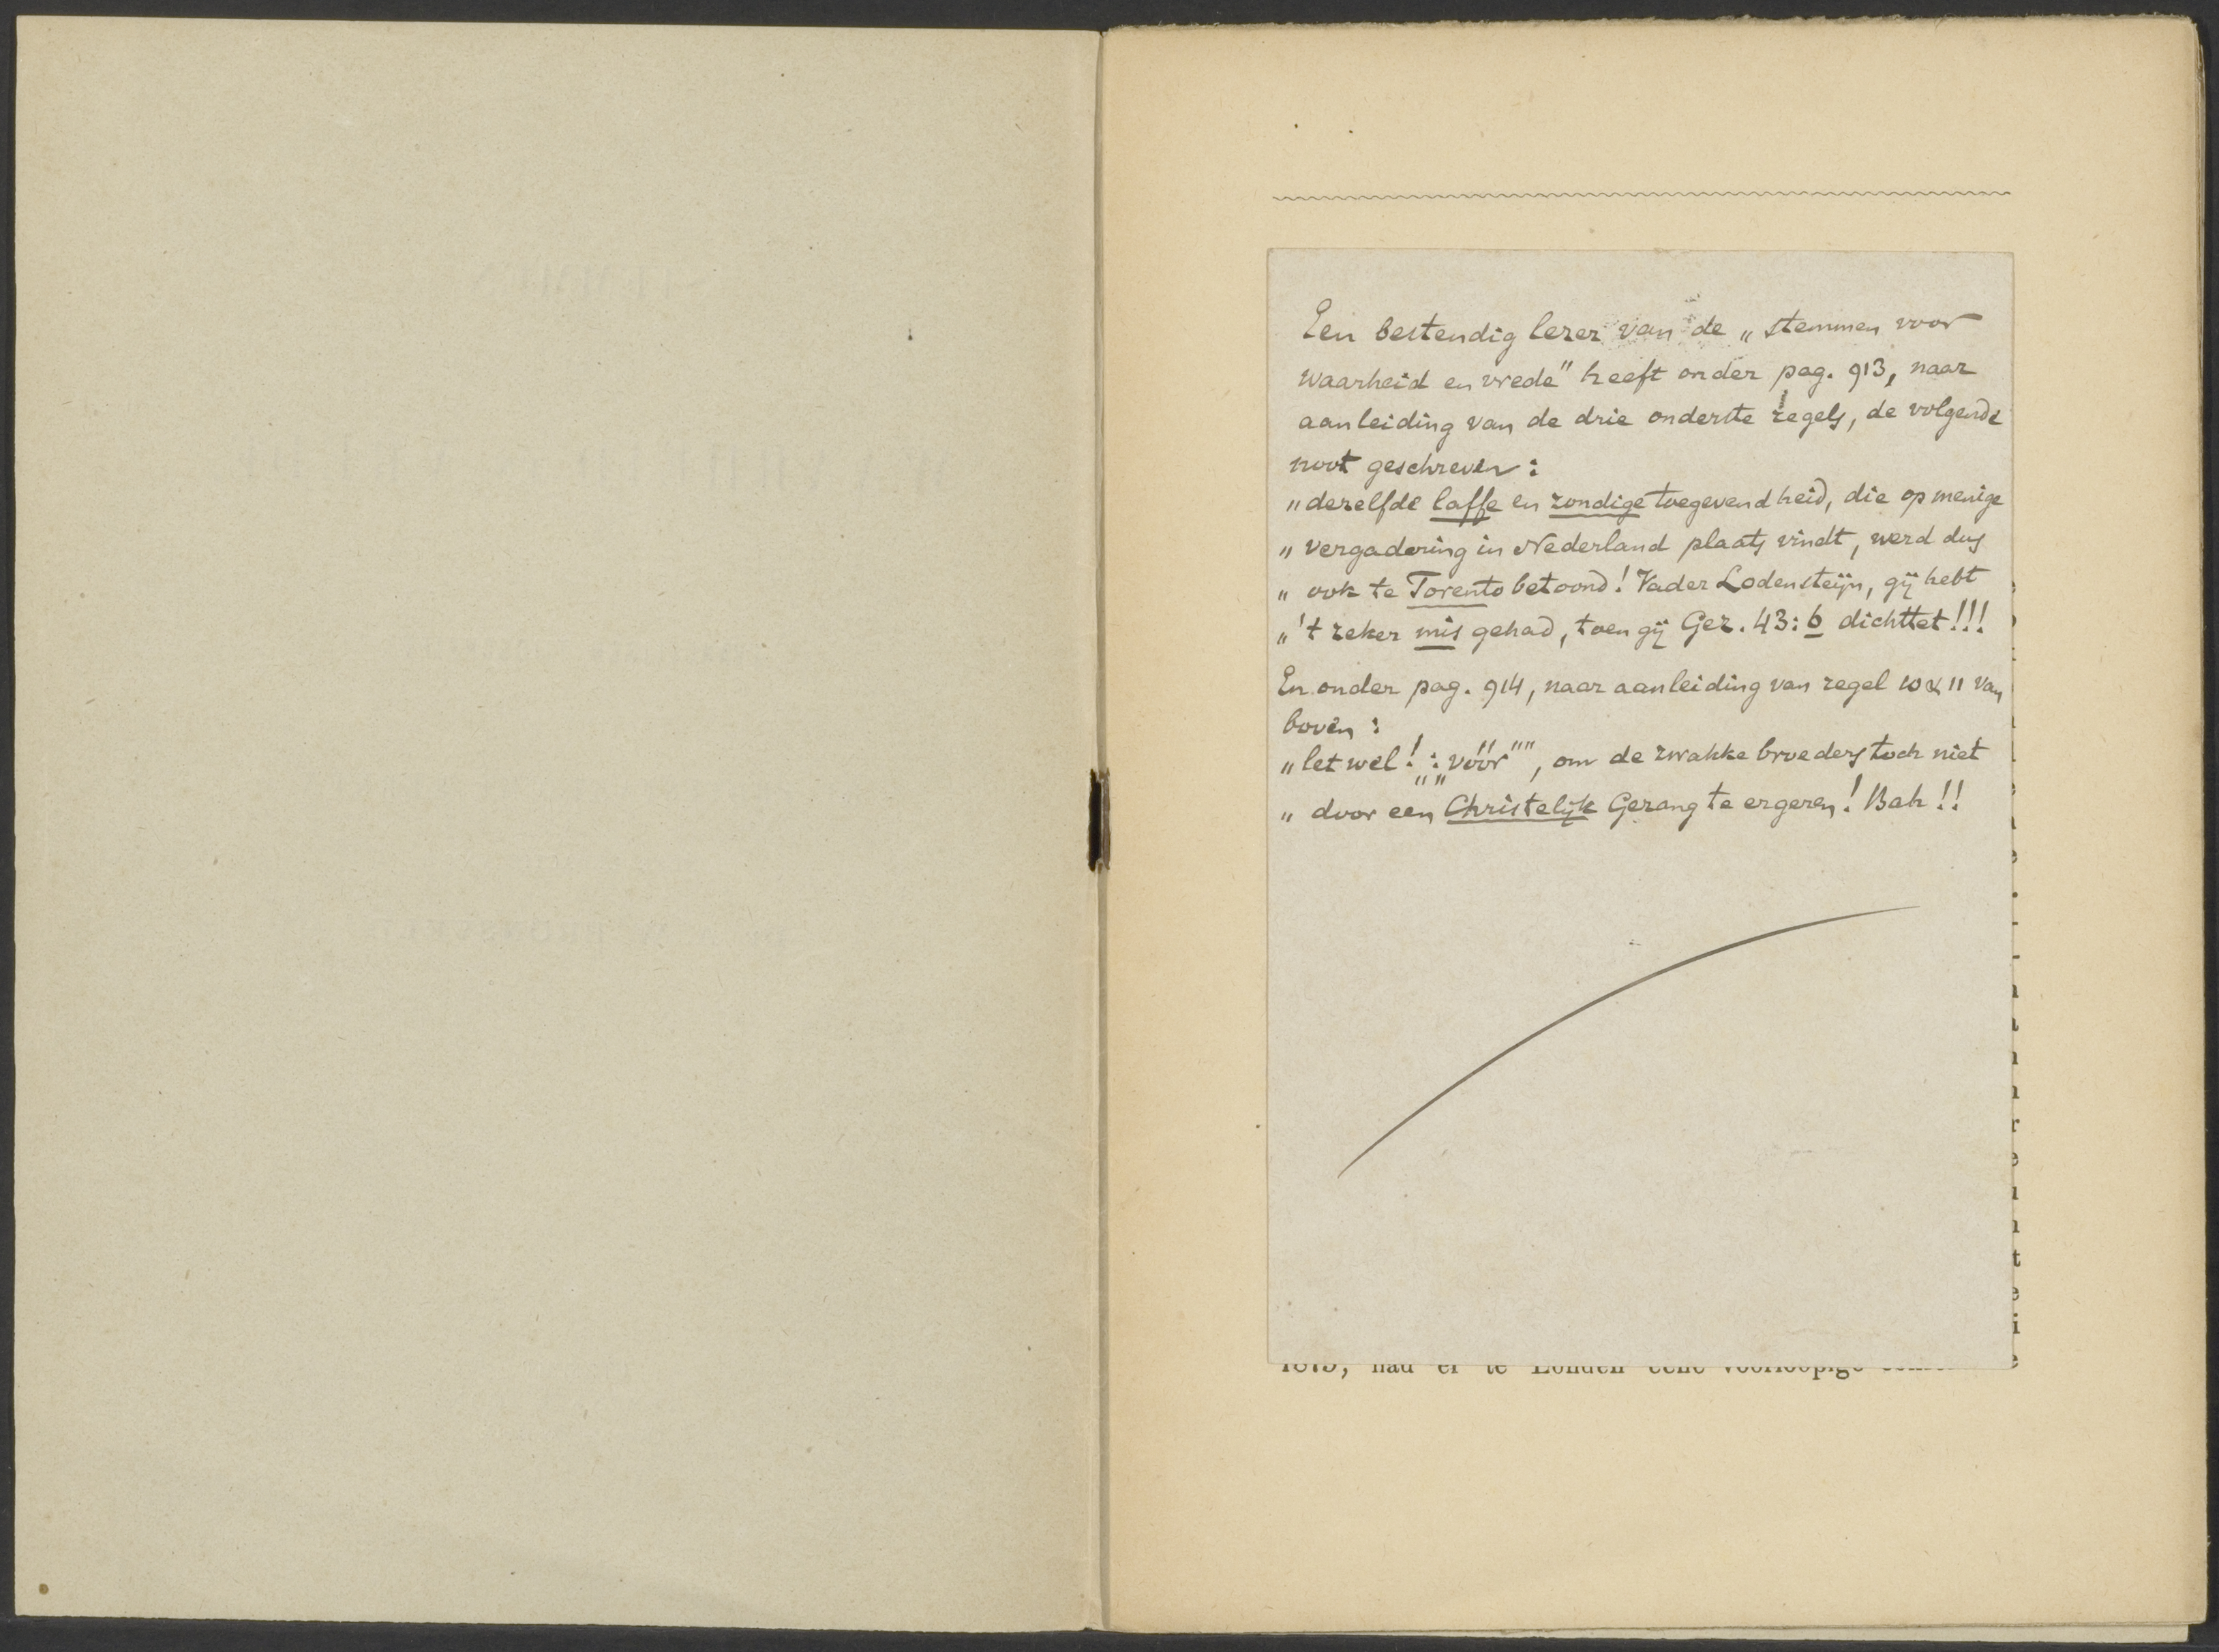 Een bestendig lezer van de „stemmen voor
waarheid en vrede" heeft onder pag. 913, naar
aanleiding van de drie onderste regels, de volgende
noot geschreven:
„dezelfde laffe en zondige toegevendheid, die op menige
„vergadering in Nederland plaats vindt, werd dus
„ook te Torento betoond! Vader Lodensteijn, gij hebt
„'t zeker mis gehad, toen gij Gez. 43:6 dichttet!!!
En onder pag. 914, naar aanleiding van regel 10 & 11 van
boven:
„let wel!: „„vóór"", om de zwakke broeders toch niet
„door een Christelijk Gezang te ergeren! Bah!!
1875, had er te Londen eene voorloopige